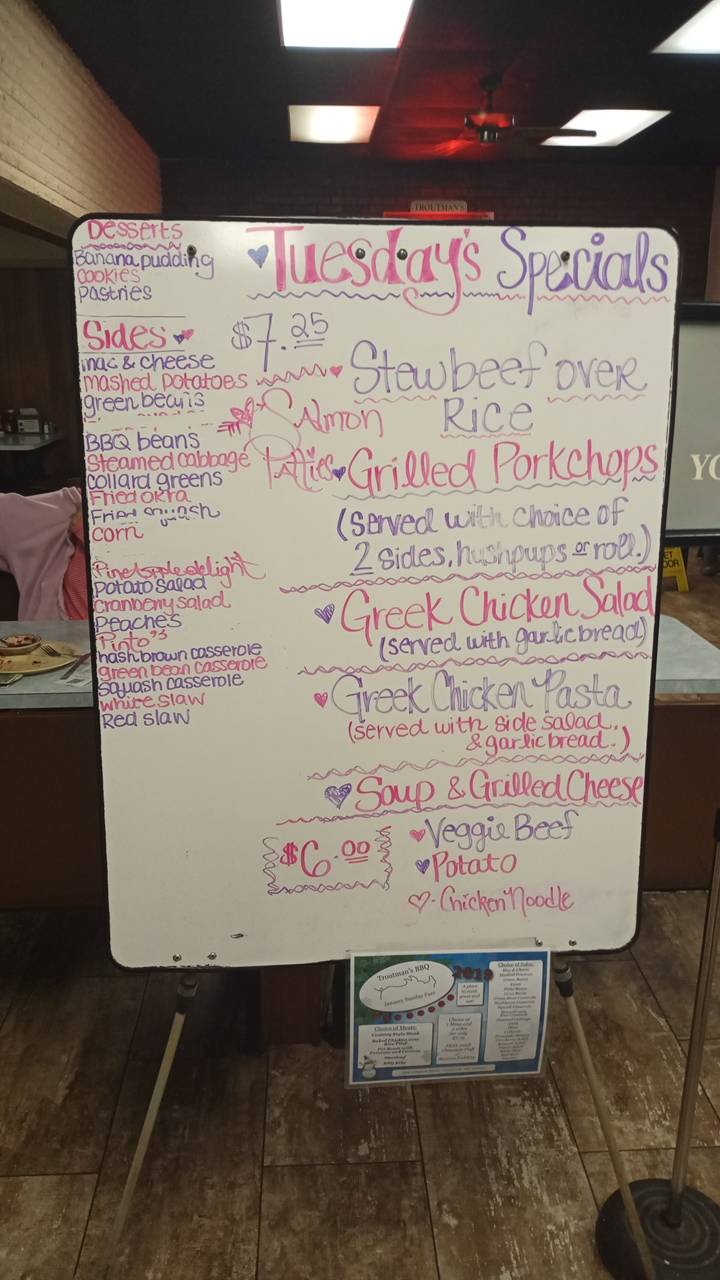 TROUTMAN'S
Desserts
Banana pudding
cookies
pastries
Sides
mac & cheese
mashed potatoes
green beans
BBQ beans
Steamed cabbage
collard greens
Fried okra
Fried squash
corn
Pineapple delight
potato salad
cranberry salad
peaches
Pinto's
hashbrown casserole
green bean casserole
squash casserole
white slaw
Red slaw
Tuesday's Specials
$7.25
Stewbeef over
Rice
Salmon
Patties
Grilled Porkchops
(Served with choice of
2 sides, hushpups or roll.)
Greek Chicken Salad
(served with garlic bread)
Greek Chicken Pasta
(served with side salad
& garlic bread.)
Soup & Grilled Cheese
$6.00
Veggie Beef
Potato
Chicken Noodle
YO
Troutman's BBQ
January Sunday Fare
2019
Choice of Meats:
Country Style Steak
Choice of Sides:
Mac & Cheese